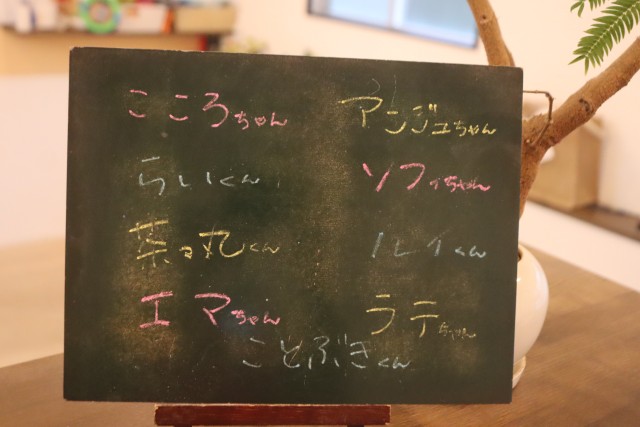 こころちゃん
らいくん
菜々丸くん
エマちゃん
アンジュちゃん
ソフィちゃん
ルイくん
ラテちゃん
ことぶきくん